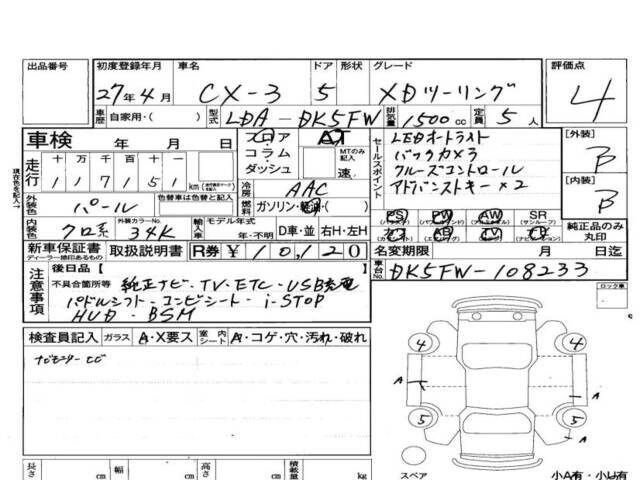 出品番号 初度登録年月 車名 ドア 形状 グレード 評価点
27年4月 CX-3 5 XDツーリング 4
車歴 自家用・( ) 型式 LDA-DK5FW 排気量 1500cc 定員 5人
車検 年 月 日 フロア AT セールスポイント LEDオートライト [外装]
コラム MTのみ記入 バックカメラ B
走行 十万 万 千 百 十 一 ダッシュ 速 クルーズコントロール [内装]
117151 km 冷房 AAC アドバンストキー×2 B
現在色を記入→ 外装色 パール 色替車は色替と記入 燃料 ガソリン・軽油・( ) PS PW AW SR 純正品のみ丸印
内装色 クロ系 外装カラーNo. 34K 輸入車 モデル年式 年・不明 D車・並 右H・左H
新車保証書 取扱説明書 R券 ¥10,120 名変期限 月 日迄
ディーラー捺印あるもの
車台No. DK5FW-108233
注意事項 後日品[ ] ロック車
不具合箇所等 純正ナビ・TV・ETC・USB充電
パドルシフト・コンビシート・i-STOP
HUD・BSM
検査員記入 ガラス A・X要ス 室内シート A・コゲ・穴・汚れ・破れ
ナビモニターヒビ
4 4
A A
5 5
A
スペア
長さ cm 幅 cm 高さ cm 積載量 kg 小A有・小U有